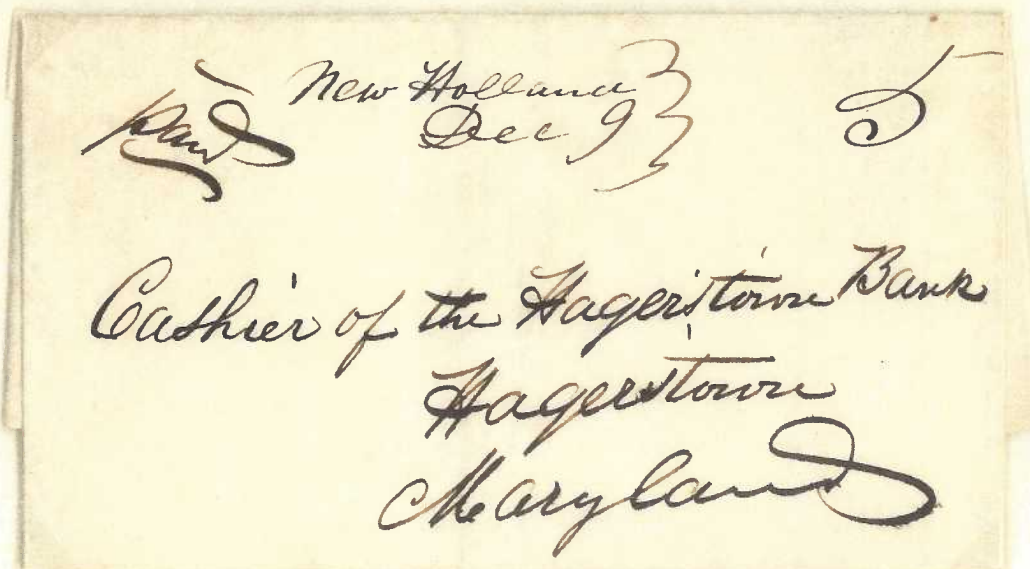 New Holland
Dec 9
Paid
5
Cashier of the Hagerstown Bank
Hagerstown
Maryland